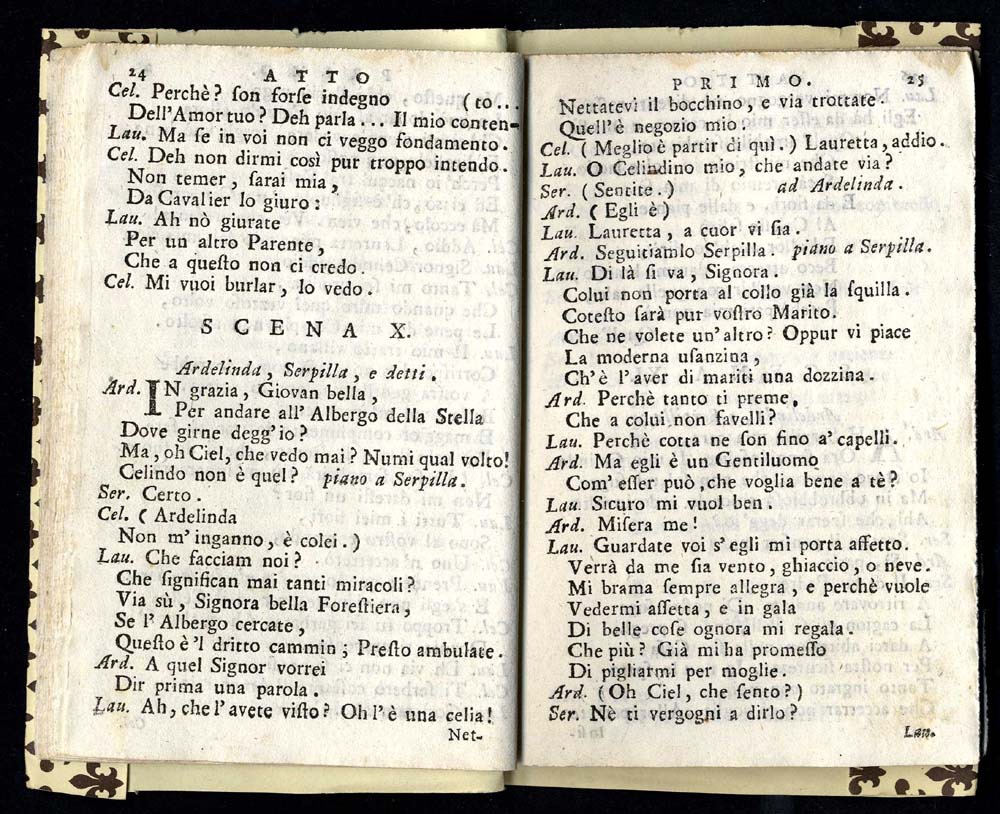 24 ATTO
Cel. Perchè? ſon forſe indegno (to...
Dell'Amor tuo? Deh parla... Il mio conten-
Lau. Ma ſe in voi non ci veggo fondamento.
Cel. Deh non dirmi così pur troppo intendo.
Non temer, ſarai mia,
Da Cavalier lo giuro:
Lau. Ah nò giurate
Per un altro Parente,
Che a queſto non ci credo.
Cel. Mi vuoi burlar, lo vedo.
SCENA X.
Ardelinda, Serpilla, e detti.
Ard. IN grazia, Giovan bella,
Per andare all' Albergo della Stella
Dove girne degg'io?
Ma, oh Ciel, che vedo mai? Numi qual volto!
Celindo non è quel? piano a Serpilla.
Ser. Certo.
Cel. ( Ardelinda
Non m'inganno, è colei.)
Lau. Che facciam noi?
Che ſignifican mai tanti miracoli?
Via sù, Signora bella Foreſtiera,
Se l' Albergo cercate,
Queſto è 'l dritto cammin; Preſto ambulate.
Ard. A quel Signor vorrei
Dir prima una parola.
Lau. Ah, che l'avete viſto? Oh l'è una celia!
Net-
PRIMO. 25
Nettatevi il bocchino, e via trottate.
Quell'è negozio mio.
Cel. ( Meglio è partir di quì.) Lauretta, addio.
Lau. O Celindino mio, che andate via?
Ser. ( Sentite.) ad Ardelinda.
Ard. ( Egli è)
Lau. Lauretta, a cuor vi ſia.
Ard. Seguitiamlo Serpilla. piano a Serpilla.
Lau. Di là ſi va, Signora.
Colui non porta al collo già la ſquilla.
Coteſto ſarà pur voſtro Marito.
Che ne volete un'altro? Oppur vi piace
La moderna uſanzina,
Ch'è l'aver di mariti una dozzina.
Ard. Perchè tanto ti preme,
Che a colui non favelli?
Lau. Perchè cotta ne ſon fino a' capelli.
Ard. Ma egli è un Gentiluomo
Com' eſſer può, che voglia bene a tè?
Lau. Sicuro mi vuol ben.
Ard. Miſera me!
Lau. Guardate voi s'egli mi porta affetto.
Verrà da me ſia vento, ghiaccio, o neve.
Mi brama ſempre allegra, e perchè vuole
Vedermi aſſetta, e in gala
Di belle coſe ognora mi regala.
Che più? Già mi ha promeſſo
Di pigliarmi per moglie.
Ard. (Oh Ciel, che ſento?)
Ser. Nè ti vergogni a dirlo?
Lau.